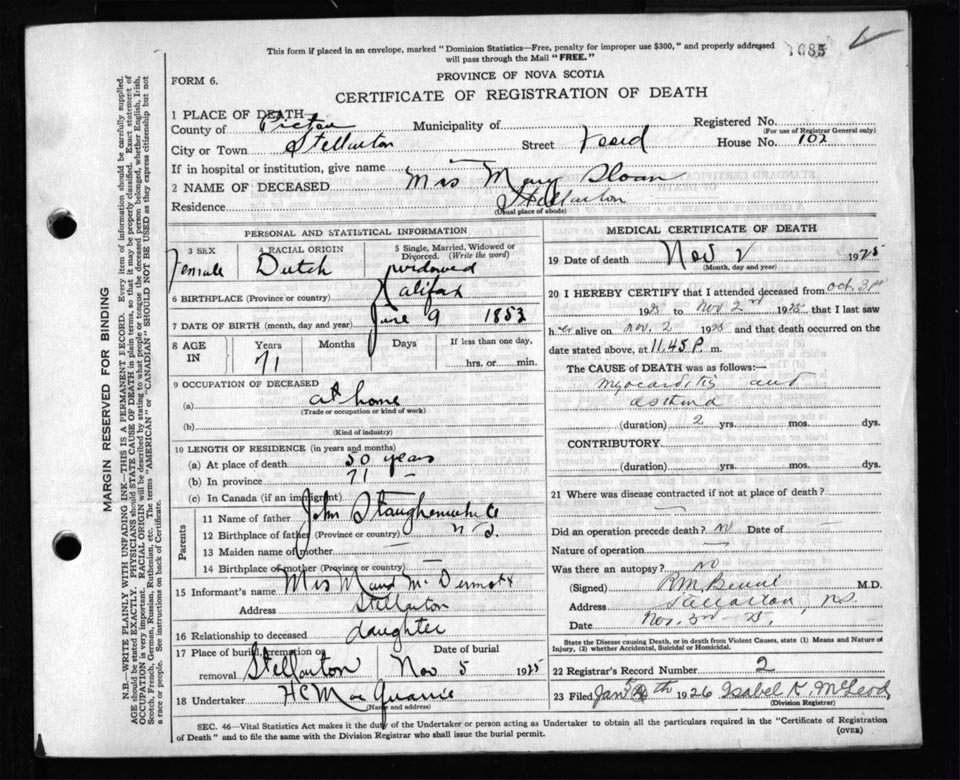 This form if placed in an envelope, marked "Dominion Statistics—Free, penalty for improper use $300," and properly addressed
will pass through the Mail "FREE."
1685
FORM 6.
PROVINCE OF NOVA SCOTIA
CERTIFICATE OF REGISTRATION OF DEATH
1 PLACE OF DEATH—
County of Pictou Municipality of Registered No.
(For use of Registrar General only)
City or Town Stellarton Street Foord House No. 102
If in hospital or institution, give name —
2 NAME OF DECEASED Mrs Mary Sloan
Residence Stellarton
(Usual place of abode)
PERSONAL AND STATISTICAL INFORMATION
3 SEX Female
4 RACIAL ORIGIN Dutch
5 Single, Married, Widowed or Divorced. (Write the word) widowed
6 BIRTHPLACE (Province or country) Halifax
7 DATE OF BIRTH (month, day and year) June 9 1853
8 AGE IN Years 71 Months Days If less than one day, hrs. or min.
9 OCCUPATION OF DECEASED
(a) at home
(Trade or occupation or kind of work)
(b)
(Kind of industry)
10 LENGTH OF RESIDENCE (in years and months)
(a) At place of death 50 years
(b) In province 71 —
(c) In Canada (if an immigrant)
Parents
11 Name of father John
12 Birthplace of father (Province or country) N.S.
13 Maiden name of mother —
14 Birthplace of mother (Province or country)
15 Informant's name Mrs Maud McDermott
Address Stellarton
16 Relationship to deceased daughter
17 Place of burial, cremation or removal Stellarton Date of burial Nov 5 1925
18 Undertaker H C MacQuarrie
(Name and address)
MEDICAL CERTIFICATE OF DEATH
19 Date of death Nov 2 1925
(Month, day and year)
20 I HEREBY CERTIFY that I attended deceased from Oct. 31st
1925 to Nov 2nd 1925 that I last saw
her alive on Nov. 2 1925 and that death occurred on the
date stated above, at 11.45 P. m.
The CAUSE OF DEATH was as follows:—
myocarditis and
asthma
(duration) 2 yrs. mos. dys.
CONTRIBUTORY
(duration) yrs. mos. dys.
21 Where was disease contracted if not at place of death?
—
Did an operation precede death? no Date of —
Nature of operation —
Was there an autopsy? no
(Signed) M.D.
Address Stellarton, N.S.
Date Nov. 3rd 25.
State the Disease causing Death, or in death from Violent Causes, state (1) Means and Nature of
Injury, (2) whether Accidental, Suicidal or Homicidal.
22 Registrar's Record Number 2
23 Filed Jany 4th 1926 Isabel K. McLeod
(Division Registrar)
SEC. 46—Vital Statistics Act makes it the duty of the Undertaker or person acting as Undertaker to obtain all the particulars required in the "Certificate of Registration
of Death" and to file the same with the Division Registrar who shall issue the burial permit.
(OVER)
MARGIN RESERVED FOR BINDING
N.B.—WRITE PLAINLY WITH UNFADING INK—THIS IS A PERMANENT RECORD. Every item of information should be carefully supplied.
AGE should be stated EXACTLY. PHYSICIANS should STATE CAUSE OF DEATH in plain terms, so that it may be properly classified. Exact statement of
OCCUPATION is very important. RACIAL ORIGIN will be described by stating to what people or tongue the deceased person belonged, whether English, Irish,
Scotch, French, German, Russian, Ruthenian, etc. The terms "AMERICAN" or "CANADIAN" SHOULD NOT BE USED as they express citizenship but not
a race or people. See instructions on back of Certificate.